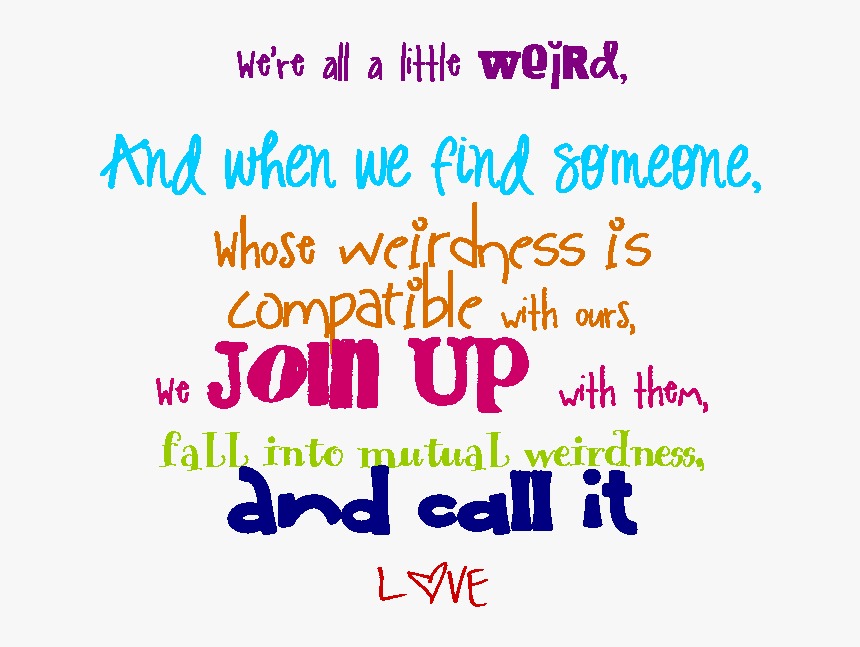 We're all a little weird,
And when we find someone,
whose weirdness is
compatible with ours,
We join up with them,
fall into mutual weirdness,
and call it
LOVE